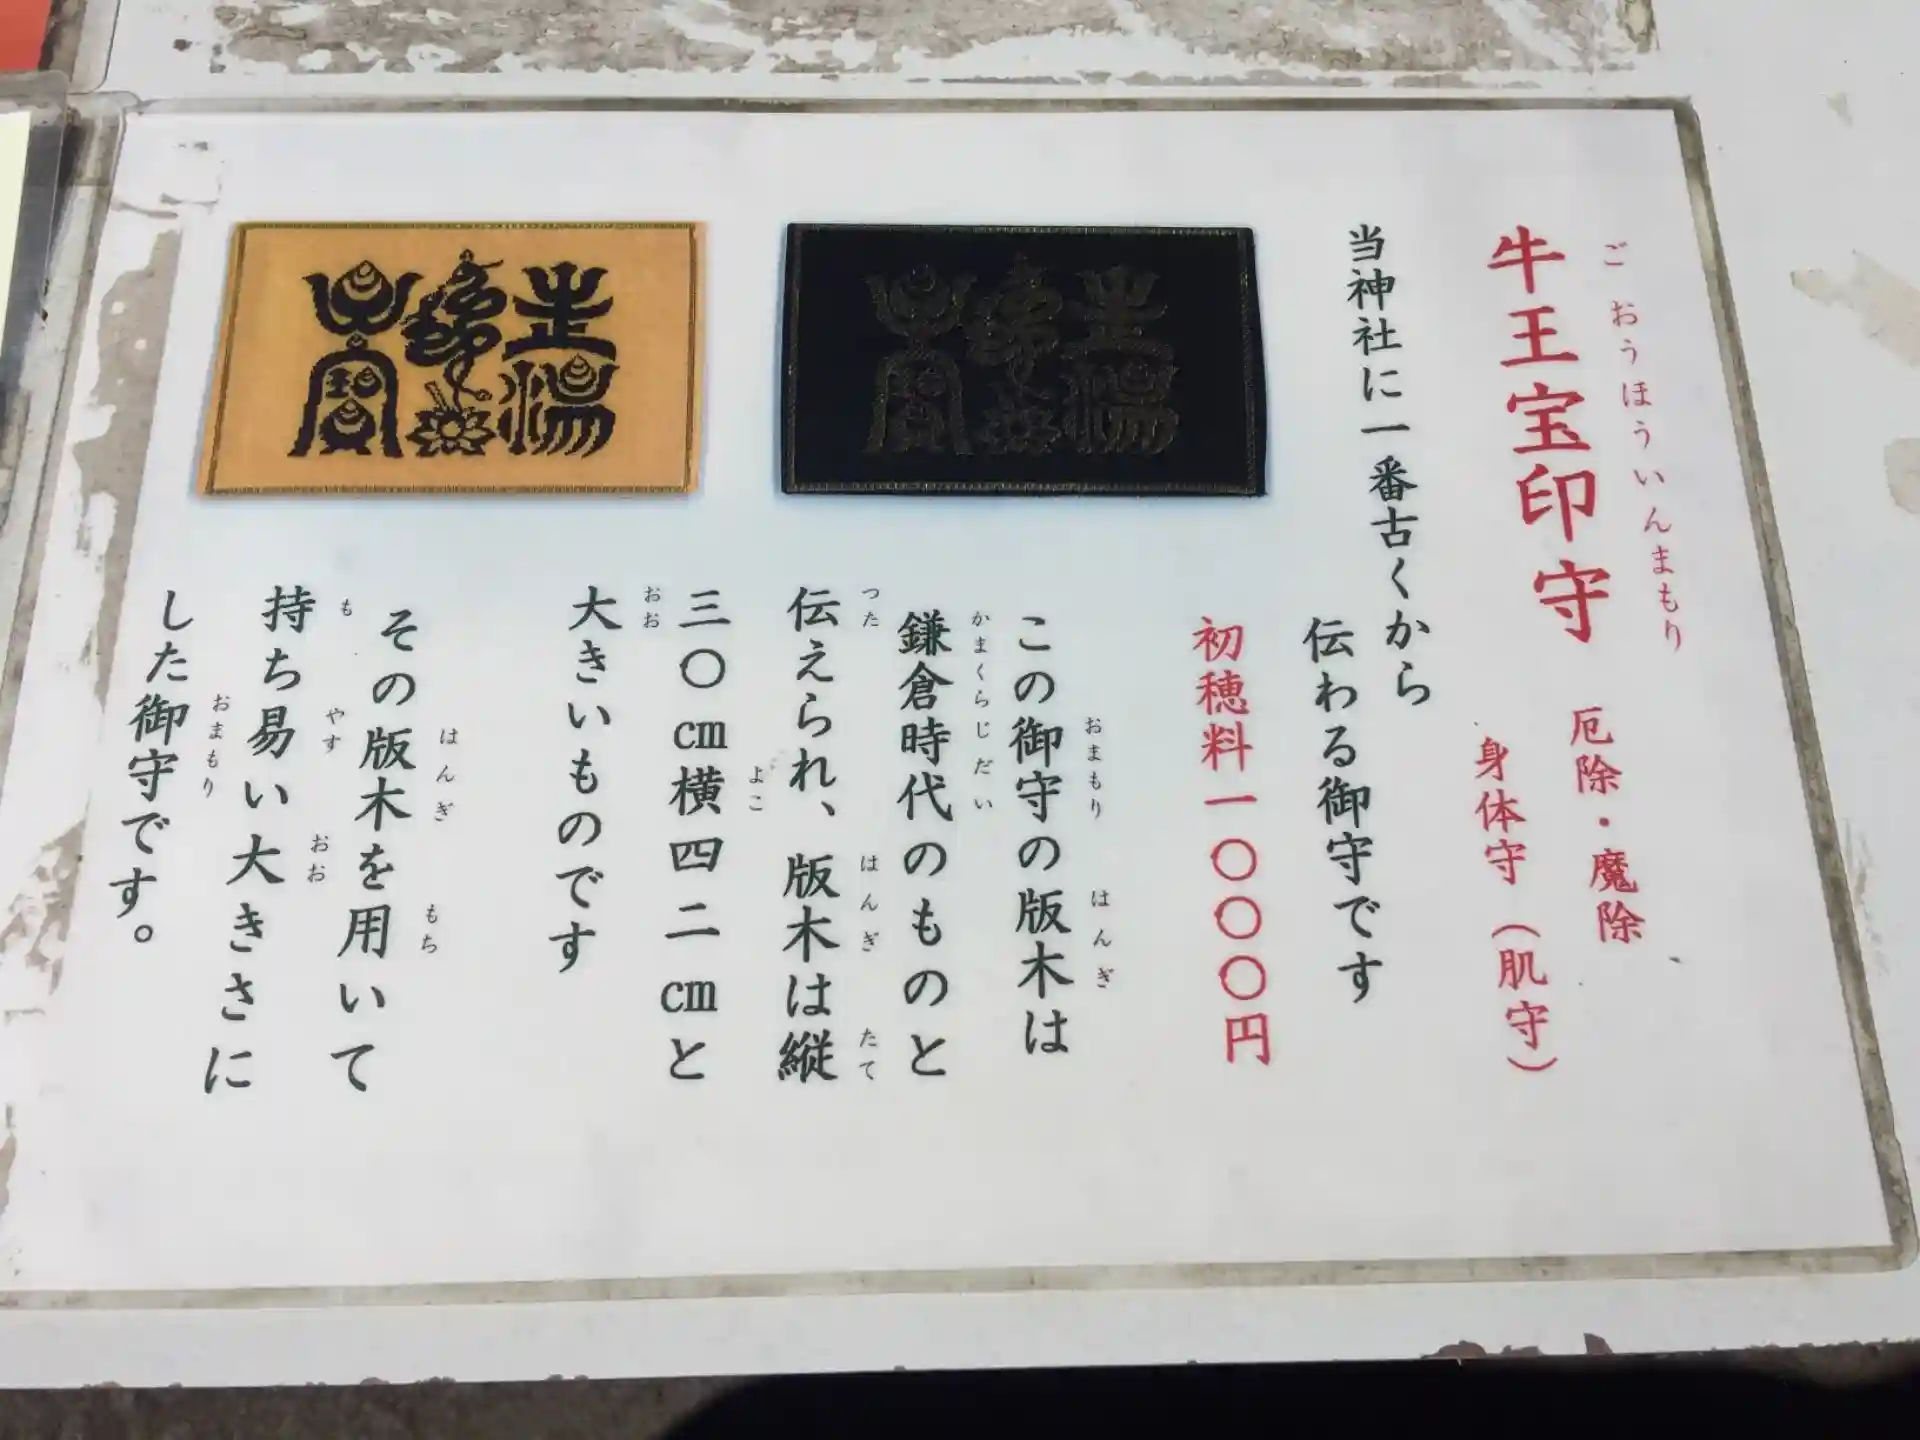 牛王宝印守
ごおうほういんまもり
厄除・魔除
身体守（肌守）
当神社に一番古くから
伝わる御守です
初穂料一〇〇〇円
この御守の版木は
おまもり はんぎ
鎌倉時代のものと
かまくらじだい
伝えられ、版木は縦
つた はんぎ たて
三〇㎝横四二㎝と
よこ
大きいものです
おお
その版木を用いて
はんぎ もち
持ち易い大きさに
も やす おお
した御守です。
おまもり